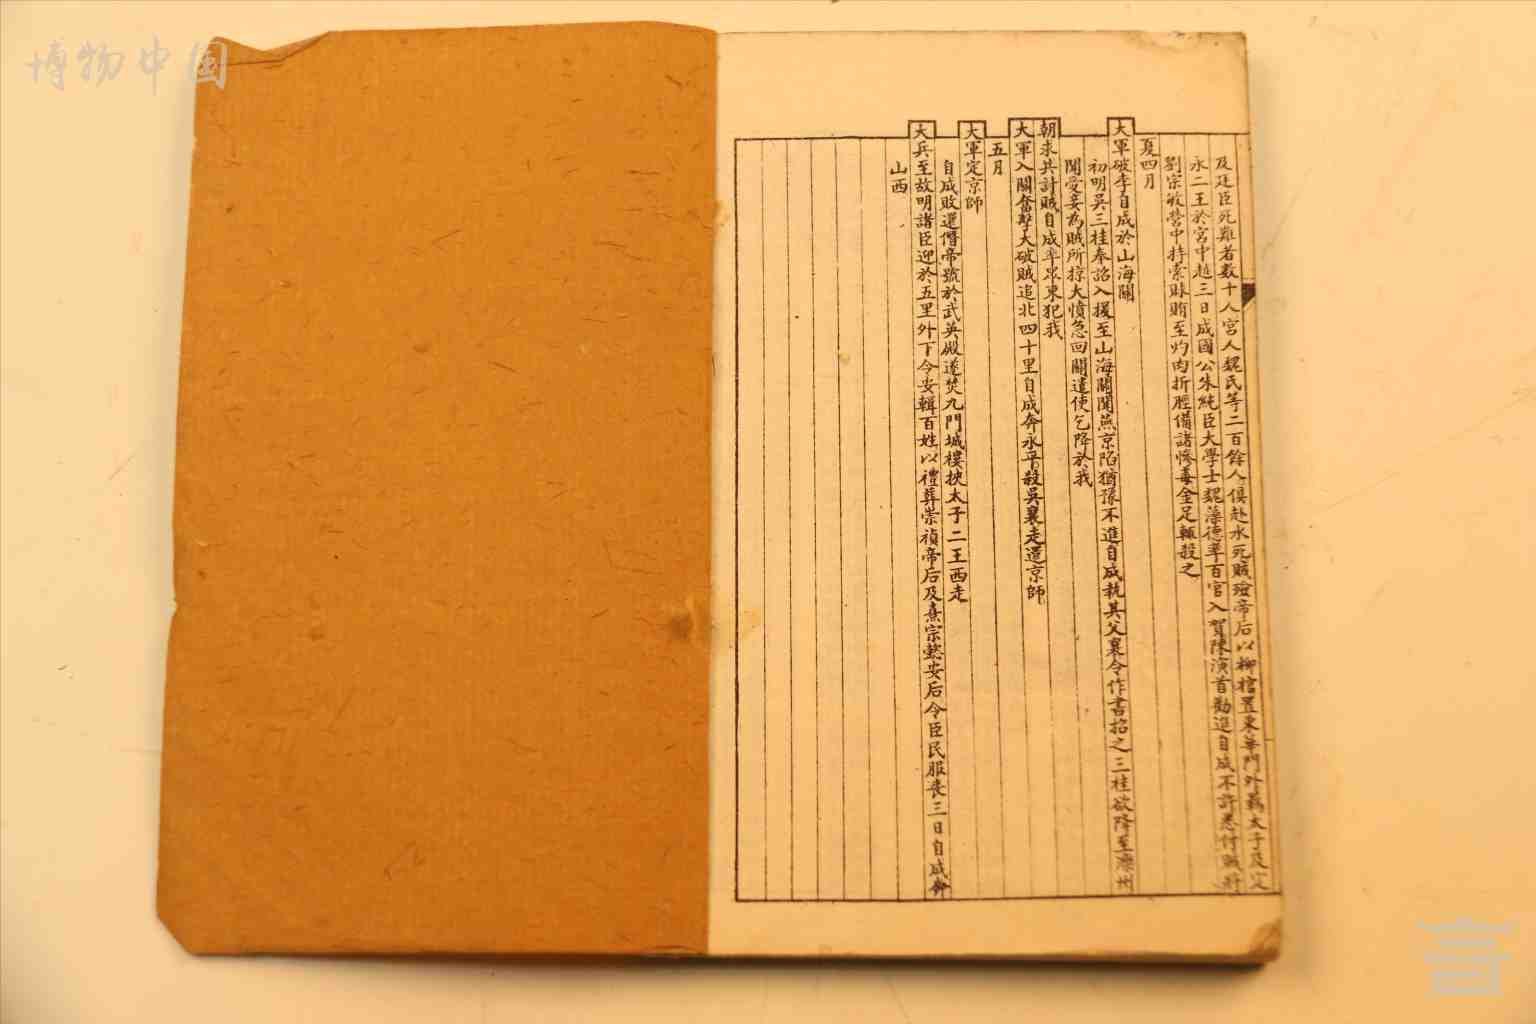 博物中国
及廷臣死難者数十人宮人魏氏等二百餘人俱赴水死賊殮帝后以柳棺置東華門外蒐太子及定
永二王於宮中越三日成國公朱純臣大學士魏藻德率百官入賀陳演首勸進自成不許悉付賊將
劉宗敏營中持索賕賄至灼肉折脛備諸慘毒金足輒殺之
夏四月
大軍破李自成於山海關
初明吳三桂奉詔入援至山海關聞燕京陷猶豫不進自成執其父襄令作書招之三桂欲降至灤州
聞愛妾為賊所掠大憤急回關遣使乞降於我
朝求共討賊自成率眾東犯我
大軍入關奮擊大破賊追北四十里自成奔永平殺吳襄走還京師
五月
大軍定京師
自成敗還僭帝號於武英殿遂焚九門城樓挾太子二王西走
大兵至故明諸臣迎於五里外下令安輯百姓以禮葬崇禎帝后及熹宗懿安后令臣民服喪三日自成奔
山西